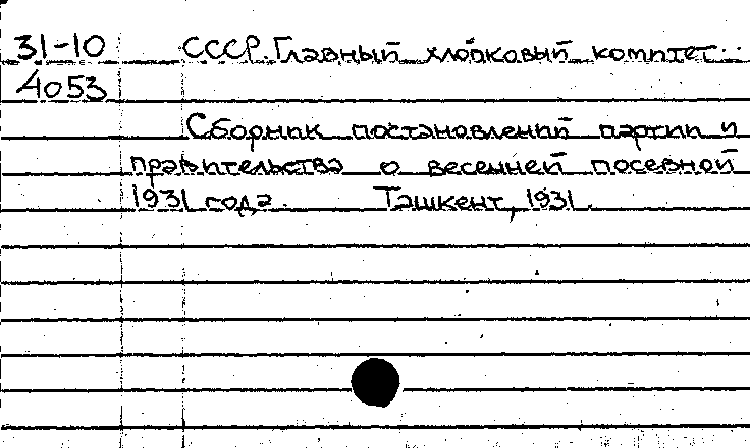 31-10 СССР. Главный хлопковый комитет..
4053
Сборник постановлений партии и
правительства о весенней посевной
1931 года. Ташкент, 1931.